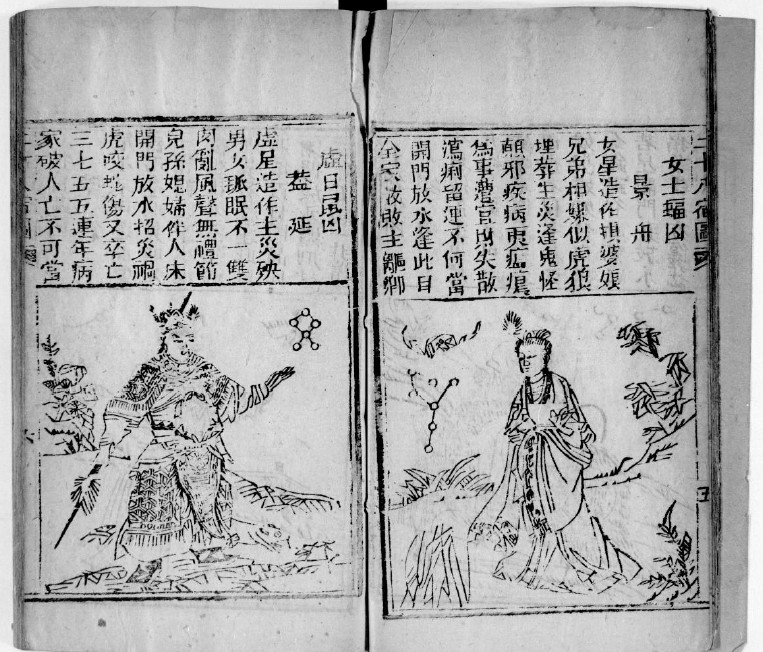 二十八宿圖
女土蝠凶
景丹
女星造作損婆娘
兄弟相嫌似虎狼
埋葬生災逢鬼怪
顛邪疾病更瘟瘟
為事遭官財失散
瀉痢留連不可當
開門放水逢此日
全家敗主離鄉
五
虛日鼠凶
蓋延
虛星造作主災殃
男女孤眠不一雙
內亂風聲無禮節
兒孫媳婦伴人床
開門放水招災禍
虎咬蛇傷又卒亡
三七五五連年病
家破人亡不可當
二十八宿圖
六